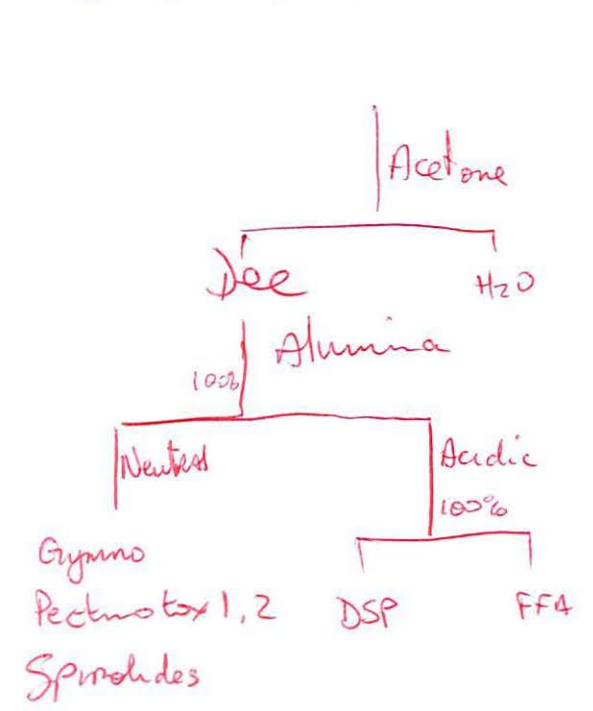 Acetone
Dee H2O
Alumina
100%
Neutral Acidic
100%
Gymno
Pectnotox 1, 2 DSP FFA
Spirolides